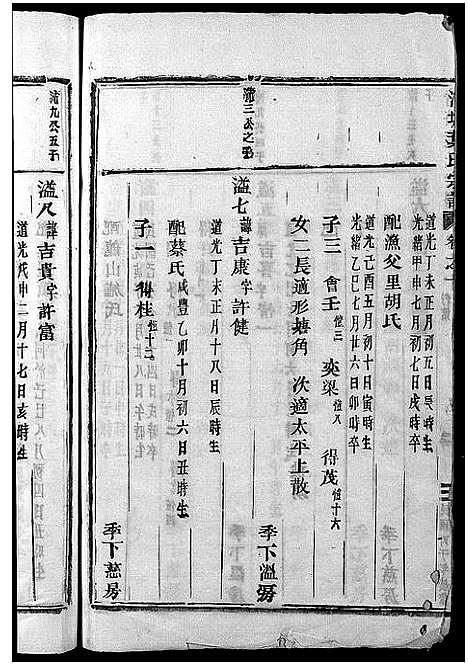 道光丁未正月初五日長時生
光緒甲申七月初九日戌時卒
配漁父里胡氏
道光己酉五月初十日寅時生
光緒乙巳七月廿六日卯時卒
子三 會壬恺三 奕梁恺八 得茂恺十六
女二長適形塘角 次適太平上散
季下溫房
蒲三公之子
溢七諱吉康字許健
道光丁未正月十八日辰時生
配蔡氏咸豐乙卯十月初六日丑時生
子一得桂恺十二
季下慈房
蒲九公五子
溢八諱吉貴字許富
道光戊申二月十七日亥時生